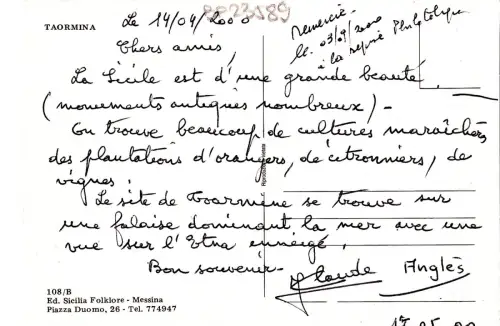 TAORMINA
Le 14/04/2000
Chers amis,
La Sicile est d'une grande beauté
(monuments antiques nombreux)-
On trouve beaucoup de cultures maraîchères
des plantations d'orangers, de citronniers, de
vignes.
Le site de Taormine se trouve sur
une falaise dominant la mer avec une
vue sur l'Etna enneigé.
Bon souvenir-
Claude Anglès
remercié
le 03/01/2000
à la
108/B
Ed. Sicilia Folklore - Messina
Piazza Duomo, 26 - Tel. 774947